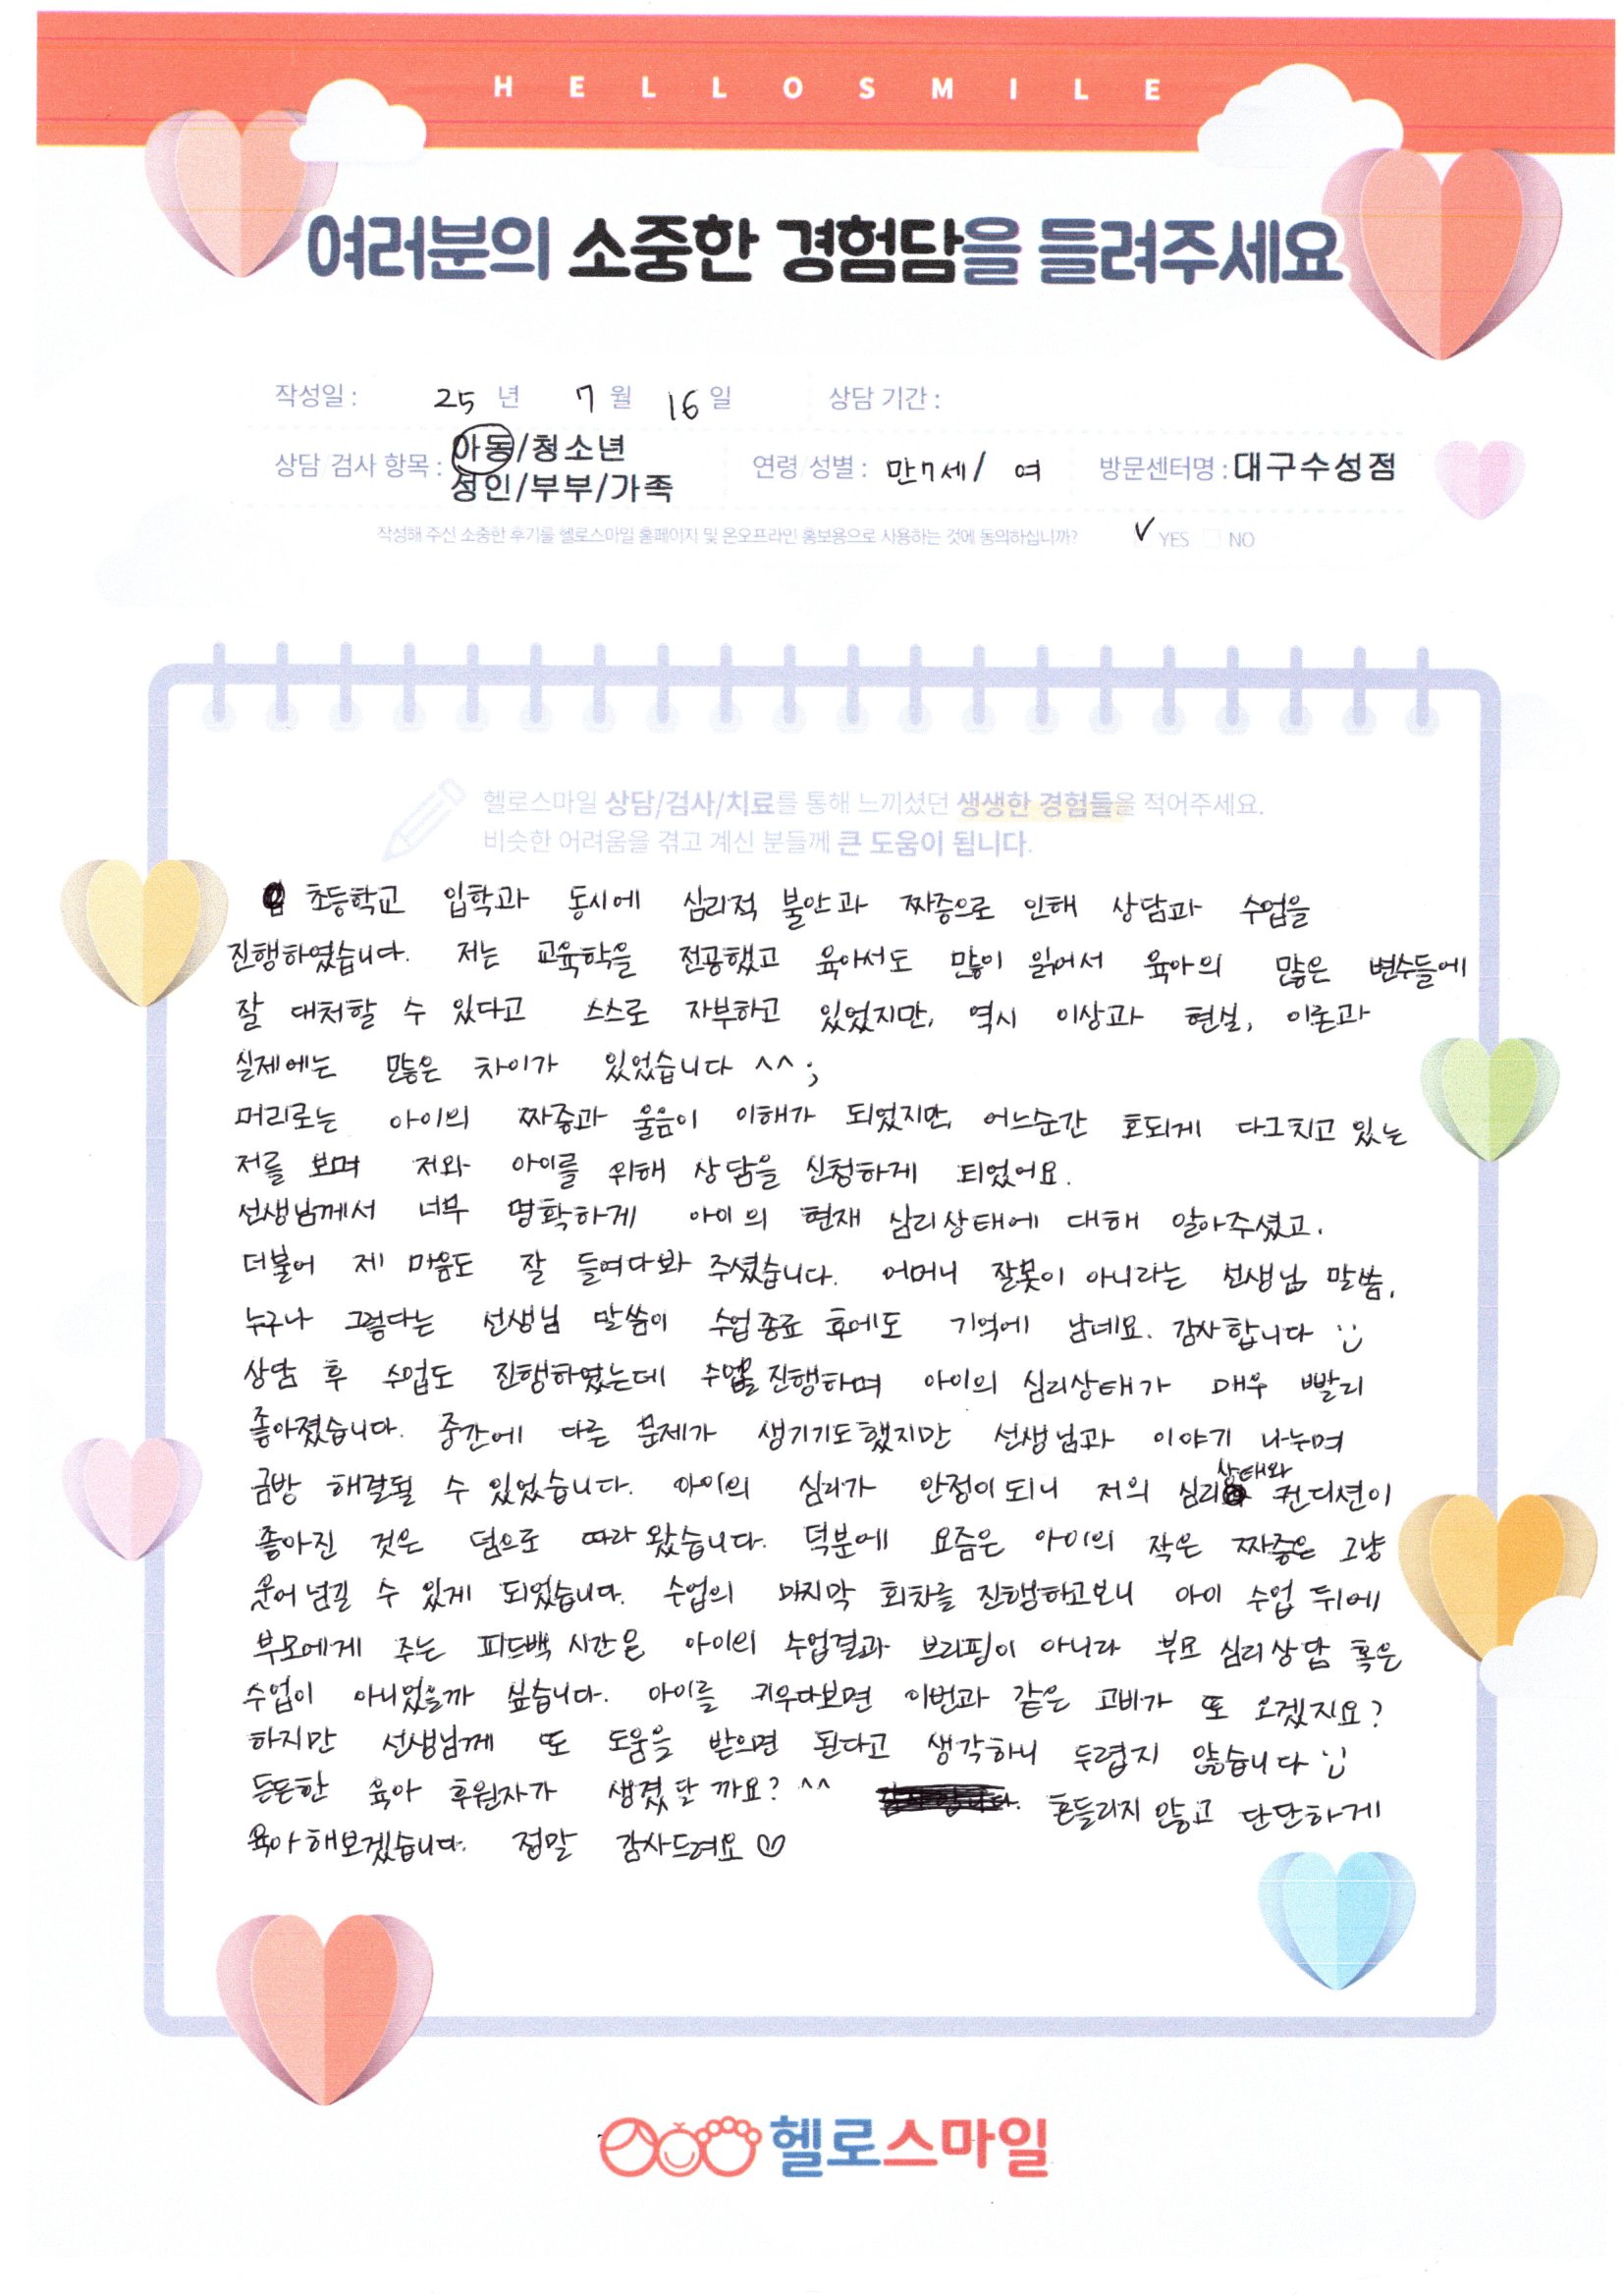 HELLOSMILE
여러분의 소중한 경험담을 들려주세요
작성일 : 25 년 7 월 16 일 상담 기간 :
상담/검사 항목 : 아동/청소년
성인/부부/가족
연령/성별 : 만7세/ 여 방문센터명 : 대구수성점
작성해 주신 소중한 후기를 헬로스마일 홈페이지 및 온오프라인 홍보용으로 사용하는 것에 동의하십니까? ✓ YES □ NO
헬로스마일 상담/검사/치료를 통해 느끼셨던 생생한 경험들을 적어주세요.
비슷한 어려움을 겪고 계신 분들께 큰 도움이 됩니다.
초등학교 입학과 동시에 심리적 불안과 짜증으로 인해 상담과 수업을
진행하였습니다. 저는 교육학을 전공했고 육아서도 많이 읽어서 육아의 많은 변수들에
잘 대처할 수 있다고 스스로 자부하고 있었지만, 역시 이상과 현실, 이론과
실제에는 많은 차이가 있었습니다 ^^;
머리로는 아이의 짜증과 울음이 이해가 되었지만, 어느순간 호되게 다그치고 있는
저를 보며 저와 아이를 위해 상담을 신청하게 되었어요.
선생님께서 너무 명확하게 아이의 현재 심리상태에 대해 알아주셨고,
더불어 제 마음도 잘 들여다봐 주셨습니다. 어머니 잘못이 아니라는 선생님 말씀,
누구나 그렇다는 선생님 말씀이 수업종료 후에도 기억에 남네요. 감사합니다 :)
상담 후 수업도 진행하였는데 수업을 진행하며 아이의 심리상태가 매우 빨리
좋아졌습니다. 중간에 다른 문제가 생기기도했지만 선생님과 이야기 나누며
금방 해결될 수 있었습니다. 아이의 심리가 안정이되니 저의 심리상태와 컨디션이
좋아진 것은 덤으로 따라왔습니다. 덕분에 요즘은 아이의 작은 짜증은 그냥
웃어넘길 수 있게 되었습니다. 수업의 마지막 회차를 진행하고보니 아이 수업 뒤에
부모에게 주는 피드백 시간은 아이의 수업결과 브리핑이 아니라 부모 심리상담 혹은
수업이 아니었을까 싶습니다. 아이를 키우다보면 이번과 같은 고비가 또 오겠지요?
하지만 선생님께 또 도움을 받으면 된다고 생각하니 두렵지 않습니다 :)
든든한 육아 후원자가 생겼달까요? ^^ 흔들리지 않고 단단하게
육아해보겠습니다. 정말 감사드려요
헬로스마일